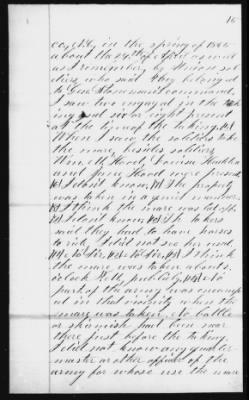 16
in the spring of 1865
about the 24th of April as well
as I remember by Union sol
diers, who said they belonged
to Gen. Stoneman's command.
I saw two engaged in the tak
ing and six or eight present
at the time of the taking.
When I saw the soldiers take
the mare, besides soldiers
Wm. M. Hood, Louisa
and Jane Hood were present.
I don't know, The property
was taken in a general manner.
I think the mare was
I don't know, The takers
said they had to have horses
to ride, I did not see her used,
No Sir No Sir, I think
the mare was taken about
o'clock
part of the army was encamp
ed in that vicinity when the
mare was taken, no battle
or skirmish had been near
there just before the taking,
I did not know any quarter
master or other officer of the
army for whose use the mare